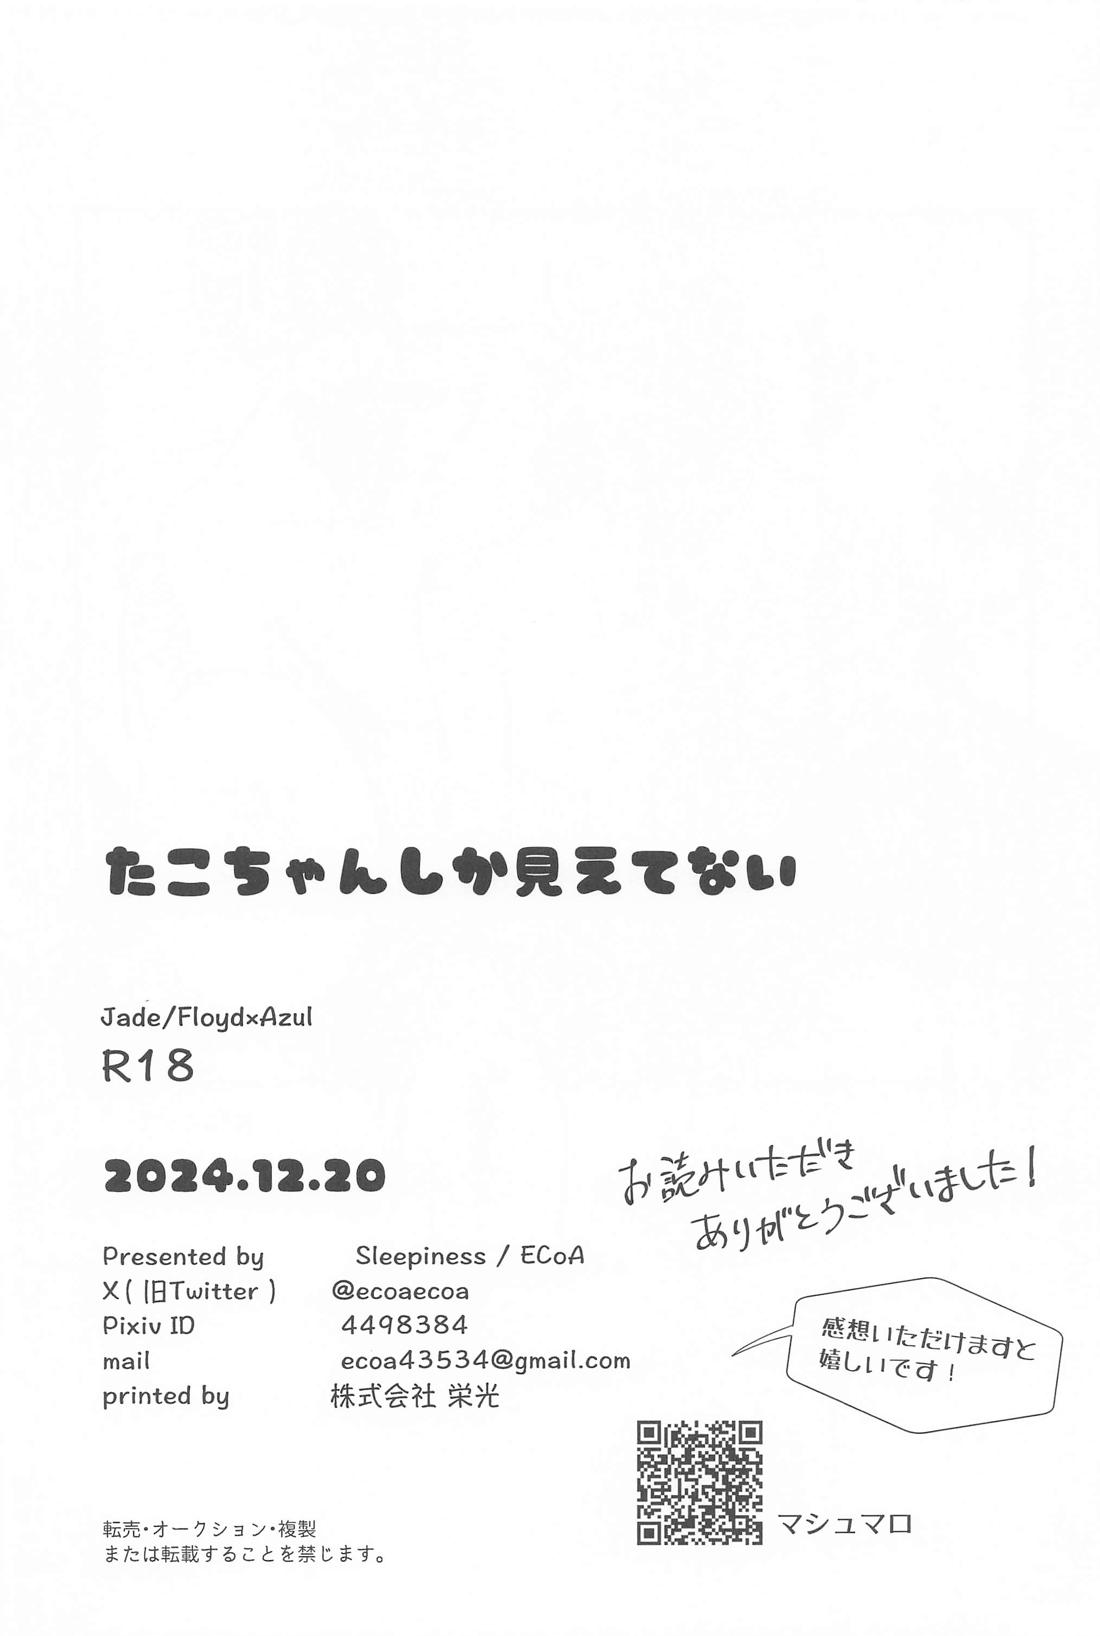 たこちゃんしか見えてない
Jade/Floyd×Azul
R18
2024.12.20
お読みいただき
ありがとうございました！
Presented by Sleepiness / ECoA
X ( 旧Twitter ) @ecoaecoa
Pixiv ID 4498384
mail ecoa43534@gmail.com
printed by 株式会社 栄光
感想いただけますと
嬉しいです！
マシュマロ
転売・オークション・複製
または転載することを禁じます。